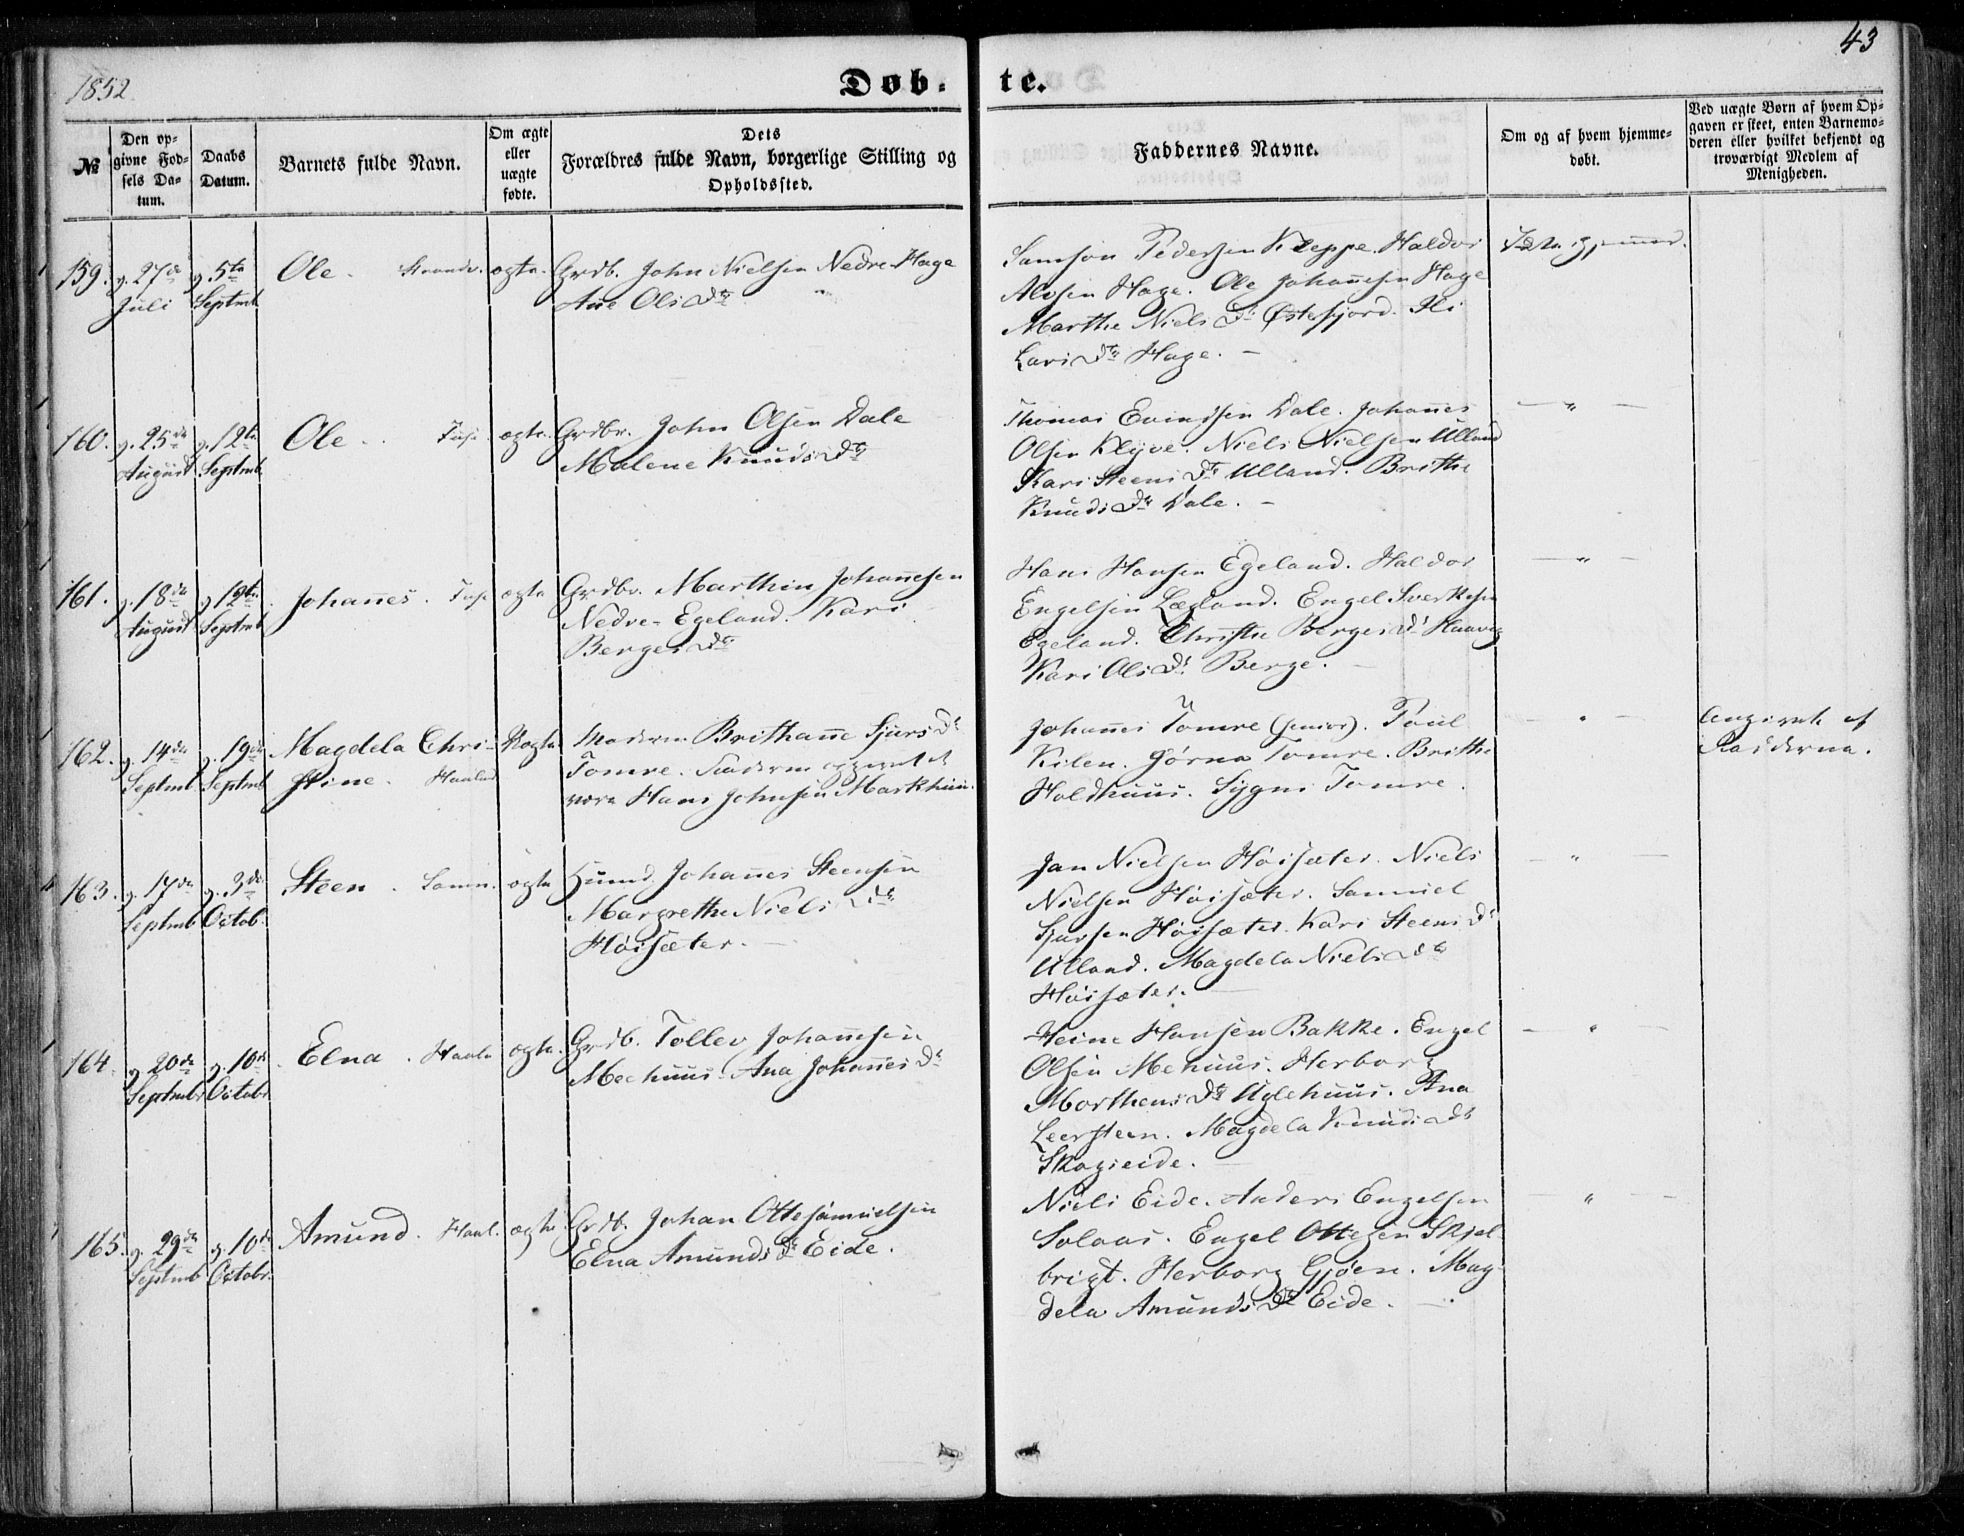 43
1852
Døb-
te.
№
Den op-
givne Fød-
sels Da-
tum.
Daabs
Datum.
Barnets fulde Navn.
Om ægte
eller
uægte
fødte.
Dets
Forældres fulde Navn, borgerlige Stilling og
Opholdssted.
Faddernes Navne.
Om og af hvem hjemme-
døbt.
Ved uægte Børn af hvem Op-
gaven er skeet, enten Barnemo-
deren eller hvilket bekjendt og
troværdigt Medlem af
Menigheden.
159.
d. 27de
Juli
d. 5te
Septmb
Ole.
Strandv.
ægte.
Grdb. John Nielsen Nedre-Hage
Ane Olsdtr
Samson Pedersen Kleppe. Haldor
Alvsen Hage. Ole Johannesen Hage
Marthe Nielsdtr Østefjord. Eli
Larsdtr Hage. -
160.
d. 25de
August
d. 12te
Septmb
Ole.
Fuse.
ægte.
Grdbr. John Olsen Dale
Malene Knudsdtr
Thomas Evindsen Dale. Johannes
Olsen Klyve. Niels Nielsen Ulland
Kari Steensdtr Ulland. Brithe
Knudsdtr Dale. -
- " -
161.
d. 18de
August
d. 12te
Septmb
Johannes.
Fuse
ægte
Grdbr. Marthin Johannesen
Nedre-Egeland. Kari
Bergesdtr
Hans Hansen Egeland. Haldor
Engelsen Lægland. Engel Sverkesen
Egeland. Christhe Bergesdtr Haavig
Kari Olsdtr Berge. -
- " -
162.
d. 14de
Septmb
d. 19de
Septmb
Magdela Chri-
stine.
Haaland
Uægte
Moderen Brithanne Sjursdtr
Tomre. Faderen opgivet at
være Hans Johnsen Markhuus.
Johannes Tomre (junior). Poul
Kilen. Gørna Tomre. Brithe
Holdhuus. Sygni Tomre.
- " -
Angivet af
Fadderne.
163.
d. 17de
Septmb
d. 3de
Octob.
Steen.
Samn.
ægte
Huusmd. Johannes Steensen
Margrethe Nielsdtr
Høisæter. -
Jan Nielsen Høisæter. Niels
Nielsen Høisæter. Samuel
Sjursen Høisæter. Kari Steensdtr
Ulland. Magdela Nielsdtr
Høisæter. -
- " -
164.
d. 20de
Septmbr
d. 10de
Octobr
Elna.
Haala
ægte.
Grdb. Tollev Johannesen
Mehuus. Ana Johannesdtr
Heine Hansen Bakke. Engel
Olsen Mehuus. Herborg
Morthensdtr Uglehuus. Ana
Leersteen. Magdela Knudsdtr
Skogseide. -
- " -
165.
d. 29de
Septmb
d. 10de
Octobr.
Amund.
Haal.
ægte
Grdb. Johan Ottesamuelsen
Elna Amundsdtr Eide.
Niels Eide. Anders Engelsen
Solaas. Engel Ottesen Skjel-
brigt. Herborg Gjøen. Mag-
dela Amundsdtr Eide. -
- " -